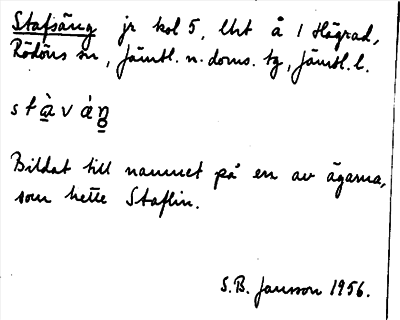 Stafsäng jr kol 5, lht å 1 Högrad,
Rödöns sn, Jämtl. n. doms. tg, Jämtl. l.
Bildat till namnet på en av ägarna,
som hette Staflin.
S.B. Jansson 1956.